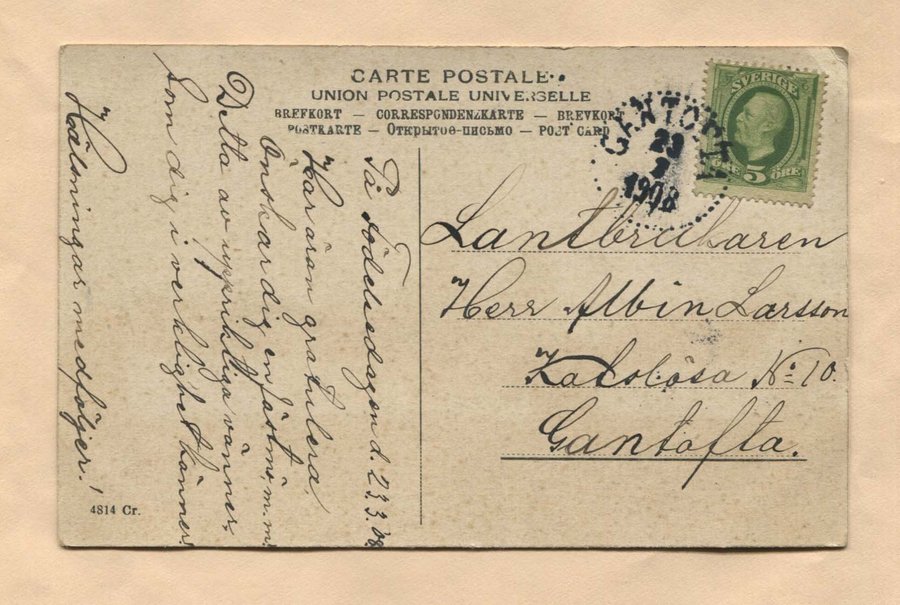 CARTE POSTALE
UNION POSTALE UNIVERSELLE
BREFKORT — CORRESPONDENZKARTE — BREVKORT
POSTKARTE — Открытое-письмо — POST CARD
SVERIGE
5 ÖRE
GANTOFTA
23
3
1908
Lantbrukaren
Herr Albin Larsson
Katslösa No 10.
Gantofta.
På födelsedagen d. 23.3.08
Har äran gratulera
Önskar dig en fästmö, m.m.
Detta av uppriktiga vänner,
som dig i verklighet känner.
Hälsningar medföljer!
4814 Cr.